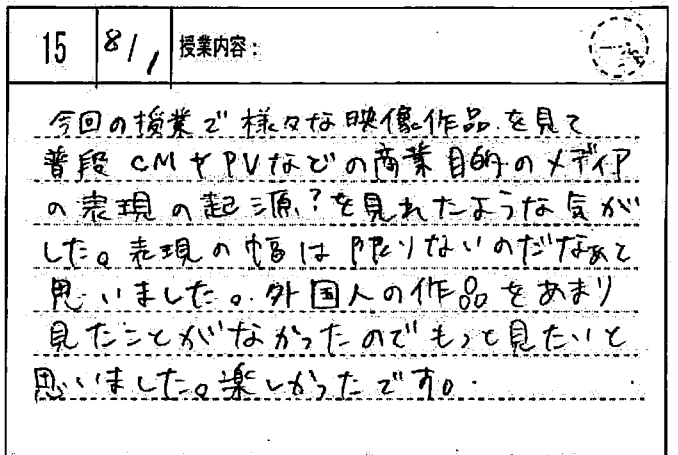 15 8/1 授業内容:
今回の授業で様々な映像作品を見て
普段CMやPVなどの商業目的のメディア
の表現の起源?を見れたような気が
した。表現の幅は限りないのだなぁと
思いました。外国人の作品をあまり
見たことがなかったのでもっと見たいと
思いました。楽しかったです。